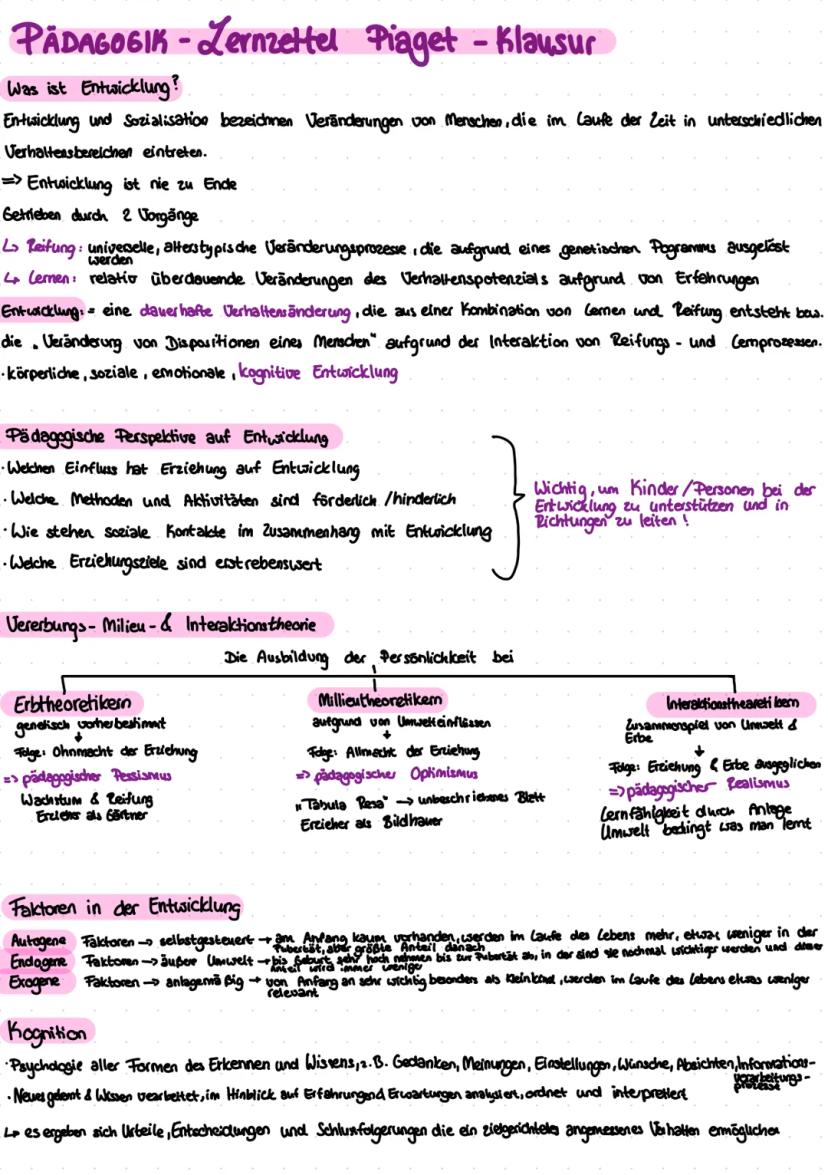 PÄDAGOGIK - Lernzettel Piaget - Klausur
Was ist Entwicklung?
Entwicklung und Sozialisation bezeichnen Veränderungen von Menschen, die im Laufe der Zeit in unterschiedlichen
Verhaltensbereichen eintreten.
=> Entwicklung ist nie zu Ende
Getrieben durch 2 Vorgänge
↳ Reifung: universelle, alterstypische Veränderungsprozesse, die aufgrund eines genetischen Pogramms ausgelöst
werden
↳ Lernen: relativ überdauende Veränderungen des Verhaltenspotenzials aufgrund von Erfahrungen
Entwicklung: = eine dauerhafte Verhaltensänderung, die aus einer Kombination von Lernen und Reifung entsteht bzw.
die „Veränderung von Dispositionen eines Menschen" aufgrund der Interaktion von Reifungs- und Lernprozessen.
· körperliche, soziale, emotionale, kognitive Entwicklung
Pädagogische Perspektive auf Entwicklung
· Welchen Einfluss hat Erziehung auf Entwicklung
· Welche Methoden und Aktivitäten sind förderlich / hinderlich
· Wie stehen soziale Kontakte im Zusammenhang mit Entwicklung
· Welche Erziehungsziele sind erstrebenswert
Wichtig, um Kinder/Personen bei der
Entwicklung zu unterstützen und in
Richtungen zu leiten!
Vererbungs- Milieu- & Interaktionstheorie
Die Ausbildung der Persönlichkeit bei
Erbtheoretikern
genetisch vorherbestimmt
↓
Folge: Ohnmacht der Erziehung
=> pädagogischer Pessismus
Wachstum & Reifung
Erzieher als Gärtner
Millieutheoretikern
aufgrund von Umwelteinflüssen
↓
Folge: Allmacht der Erziehung
=> pädagogischer Optimismus
"Tabula Rasa" → unbeschriebenes Blatt
Erzieher als Bildhauer
Interaktionstheoretikern
Zusammenspiel von Umwelt &
Erbe
↓
Folge: Erziehung & Erbe ausgeglichen
=> pädagogischer Realismus
Lernfähigkeit durch Anlage
Umwelt bedingt was man lernt
Faktoren in der Entwicklung
Autogene Faktoren → selbstgesteuert → am Anfang kaum vorhanden, werden im Laufe des Lebens mehr, etwas weniger in der
Pubertät, aber größte Anteil danach
Endogene Faktoren → äußere Umwelt → bis Geburt sehr hoch nehmen bis zur Pubertät ab, in der sind sie nochmal wichtiger werden und
Anteil wird immer weniger
Exogene Faktoren → anlagemäßig → von Anfang an sehr wichtig besonders als Kleinkind, werden im Laufe des Lebens etwas weniger
relevant
Kognition
· Psychologie aller Formen des Erkennen und Wissens, z.B. Gedanken, Meinungen, Einstellungen, Wünsche, Absichten, Informations-
verarbeitungs-
prozesse
· Neues gelernt & Wissen verarbeitet, im Hinblick auf Erfahrungend Erwartungen analysiert, ordnet und interpretiert
↳ es ergeben sich Urteile, Entscheidungen und Schlussfolgerungen die ein zielgerichtetes angemessenes Verhalten ermöglichen